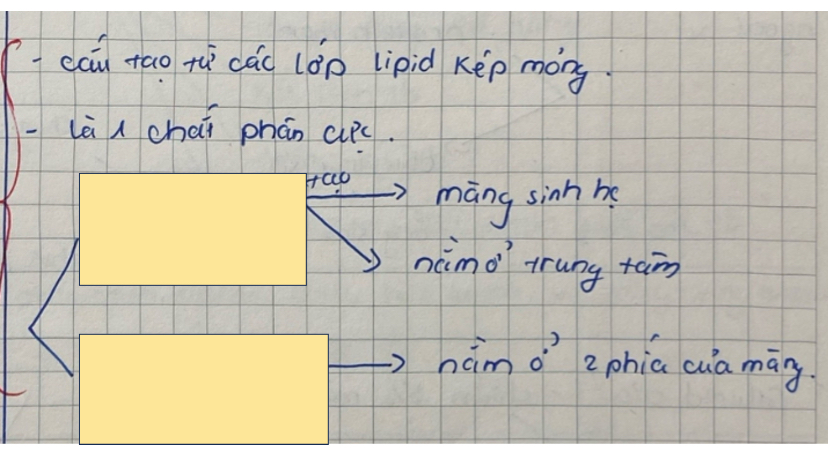 - cấu tạo từ các lớp lipid kép mỏng.
- là 1 chất phân cực.
tạo
màng sinh học
nằm ở trung tâm
nằm ở 2 phía của màng.